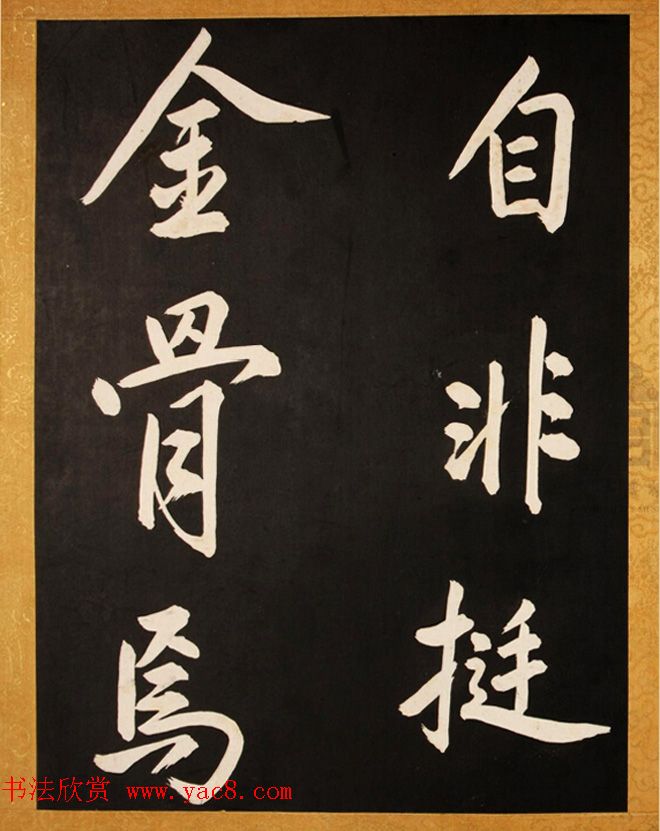 自非挺
金骨焉
书法欣赏 www.yac8.com